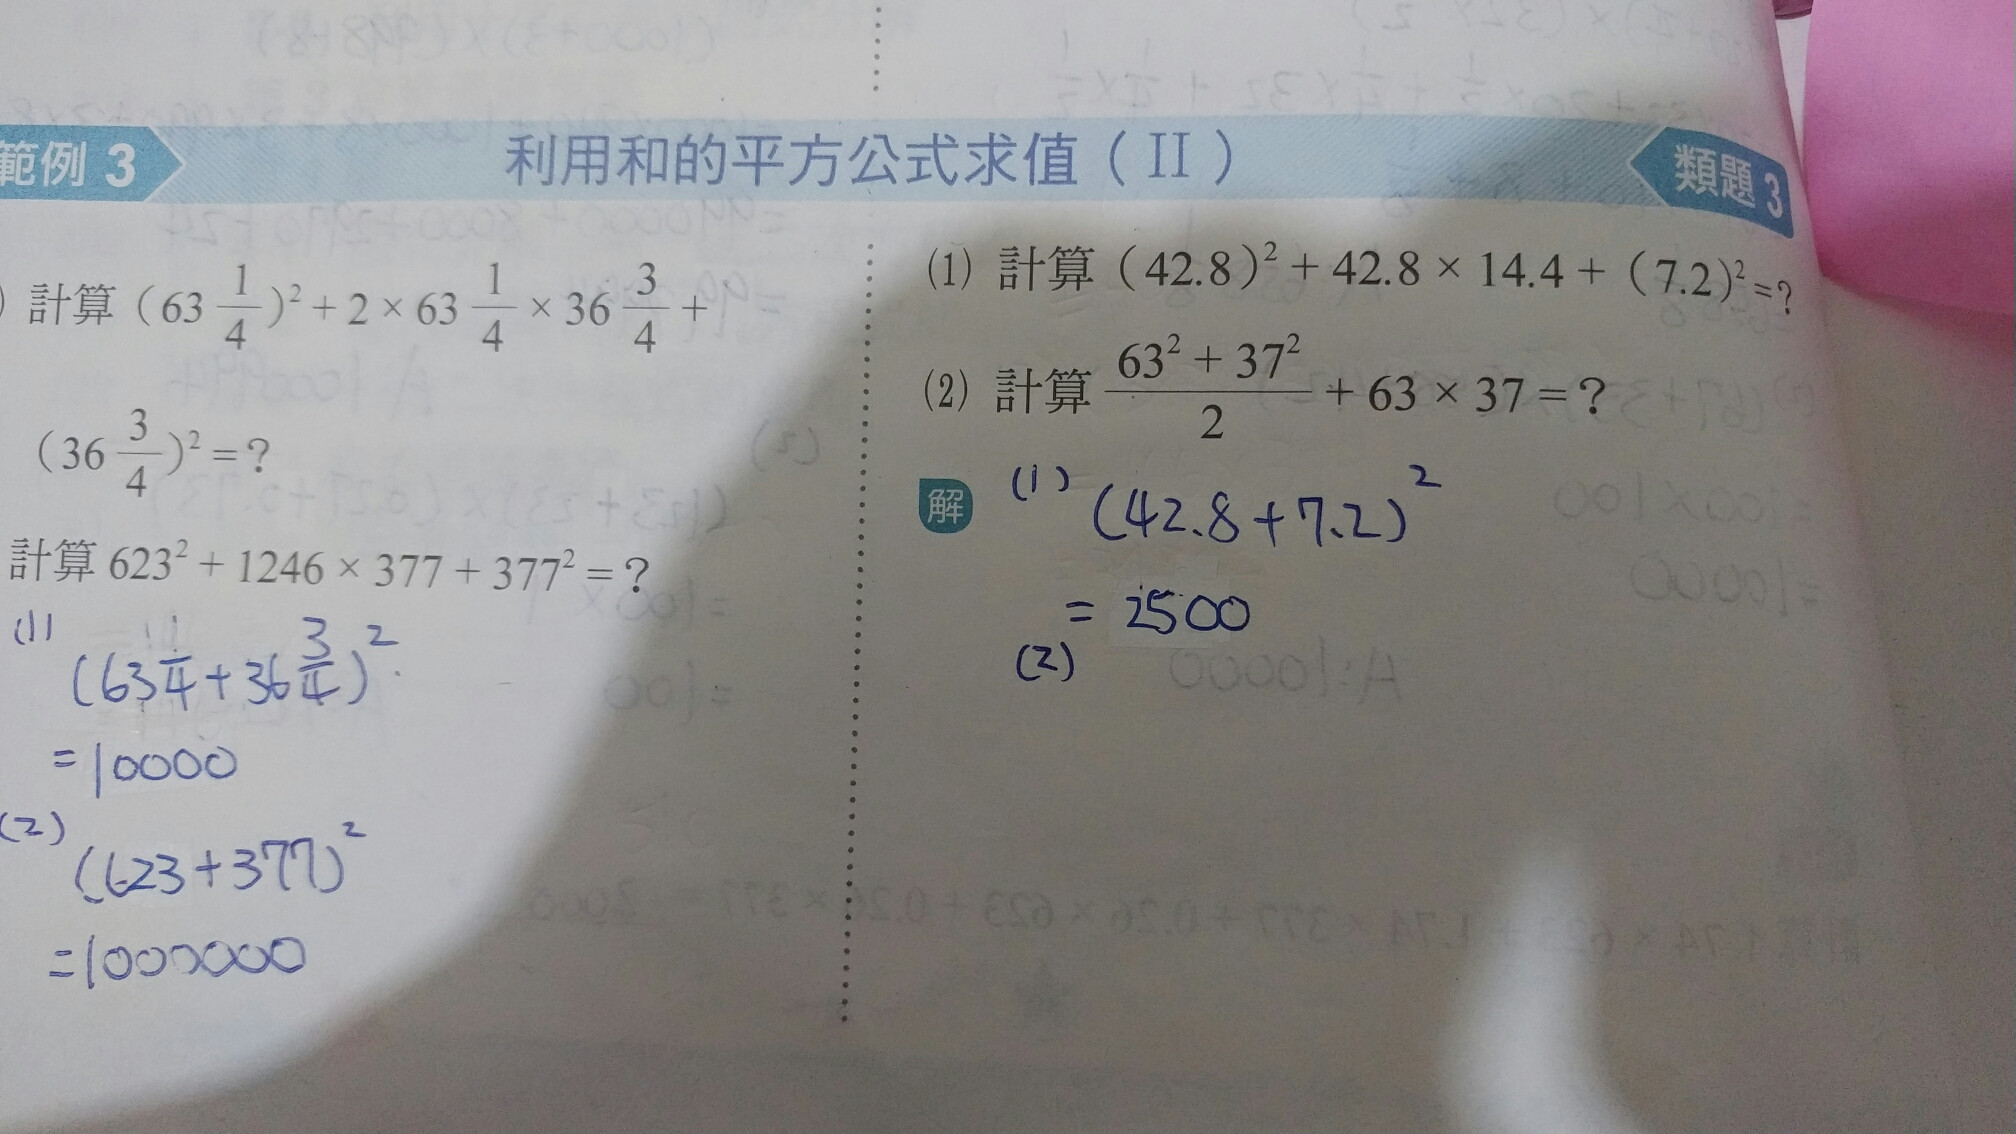 範例 3
利用和的平方公式求值（II）
類題 3
) 計算（63 1/4）² + 2 × 63 1/4 × 36 3/4 +
（36 3/4）² = ?
計算 623² + 1246 × 377 + 377² = ?
(1)
(63 1/4 + 36 3/4)²
= 10000
(2)
(623+377)²
= 1000000
(1) 計算（42.8）² + 42.8 × 14.4 +（7.2）² = ?
(2) 計算 (63² + 37²)/2 + 63 × 37 = ?
解
(1) (42.8+7.2)²
= 2500
(2)